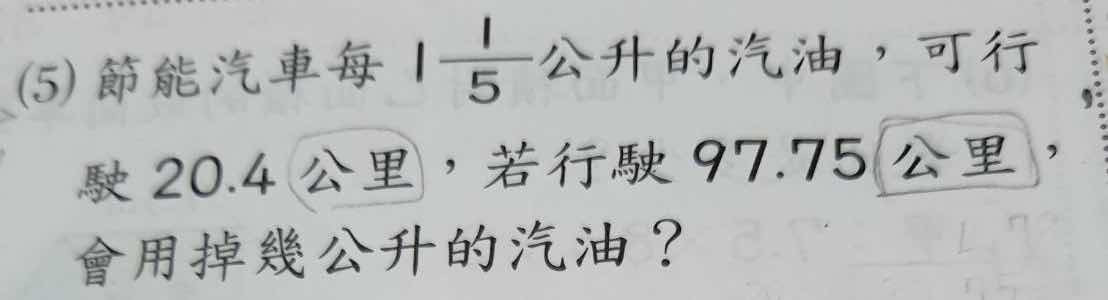 (5) 節能汽車每 1 1/5 公升的汽油，可行
駛 20.4 公里，若行駛 97.75 公里，
會用掉幾公升的汽油？